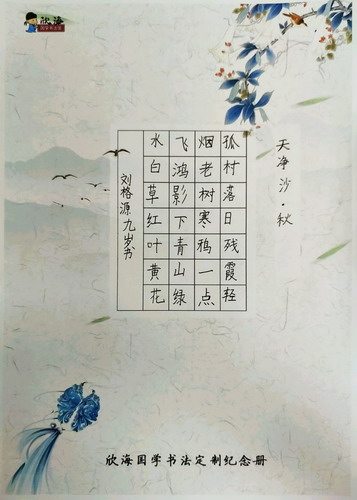 欣海
天净沙·秋
孤村落日残霞轻
烟老树寒鸦一点
飞鸿影下青山绿
水白草红叶黄花
刘格源九岁书
欣海国学书法定制纪念册